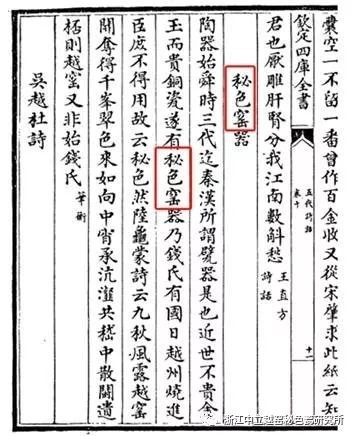 囊空一不留一番曾作百金收又從宋肇求此紙云知
欽定四庫全書
五代詩話
卷十
十一
君也厭雕肝腎分我江南數斛愁 王直方詩話
秘色窰器
陶器始舜時三代迄秦漢所謂甓器是也近世不貴金
玉而貴銅瓷遂有秘色窰器乃錢氏有國日越州燒進
臣庶不得用故云秘色然陸龜蒙詩云九秋風露越窰
開奪得千峯翠色來如向中宵承沆瀣共嵇中散鬪遺
桮則越窰又非始錢氏 筆衡
吳越杜詩
浙江中立越窑秘色瓷研究所